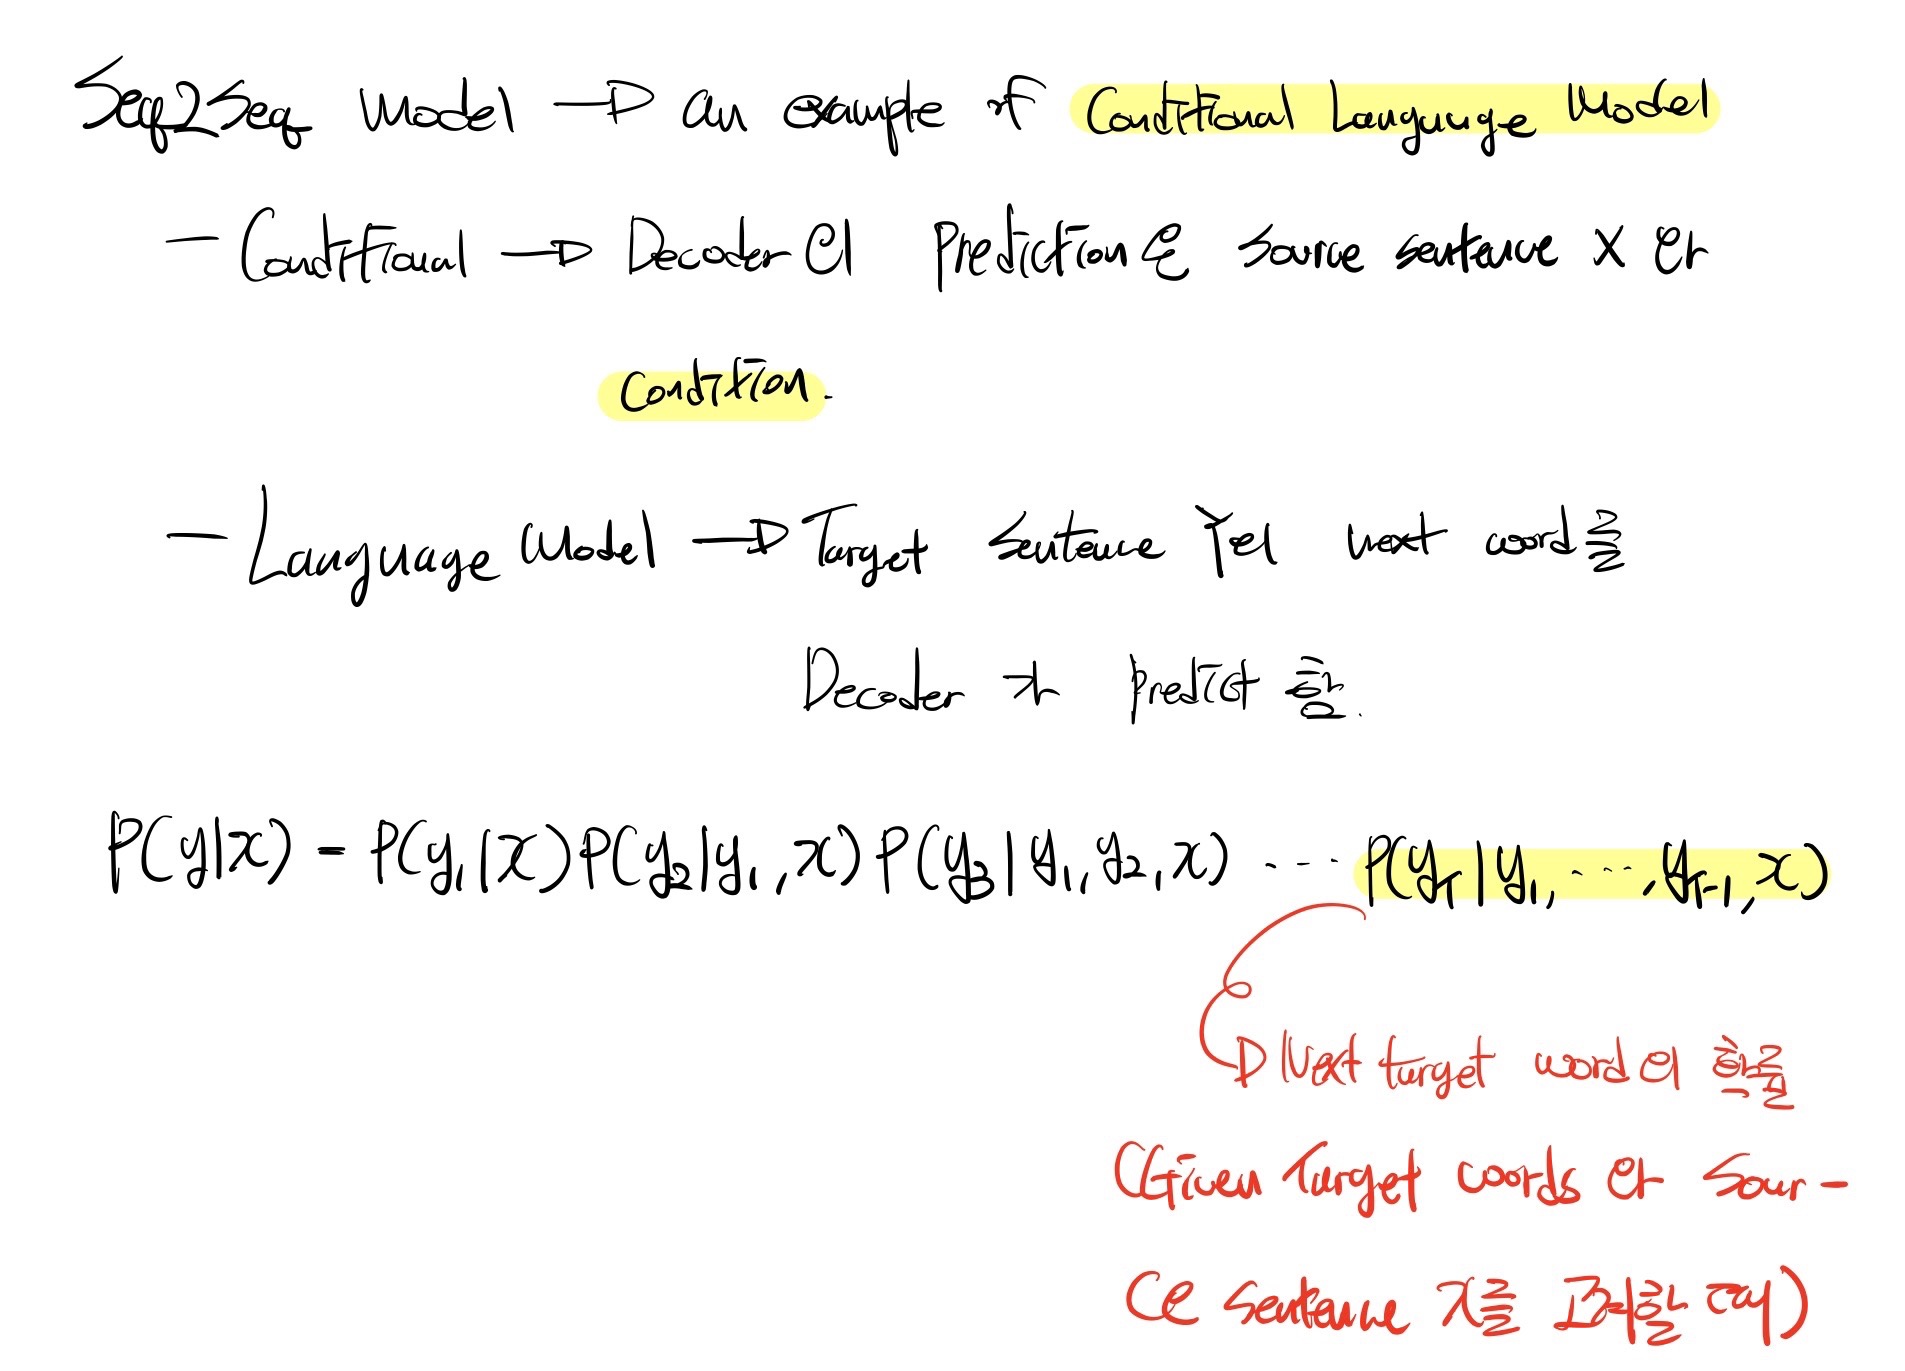 Seq2Seq Model → an example of Conditional Language Model
- Conditional → Decoder의 Prediction은 source sentence X와
condition.
- Language Model → Target sentence Y의 next word를
Decoder가 predict 함.
P(y|x) = P(y₁|x)P(y₂|y₁,x)P(y₃|y₁,y₂,x) ... P(y_T|y₁,...,y_T-1,x)
→ Next target word의 확률
(Given Target words와 Sour-
ce sentence x를 고려할 때)